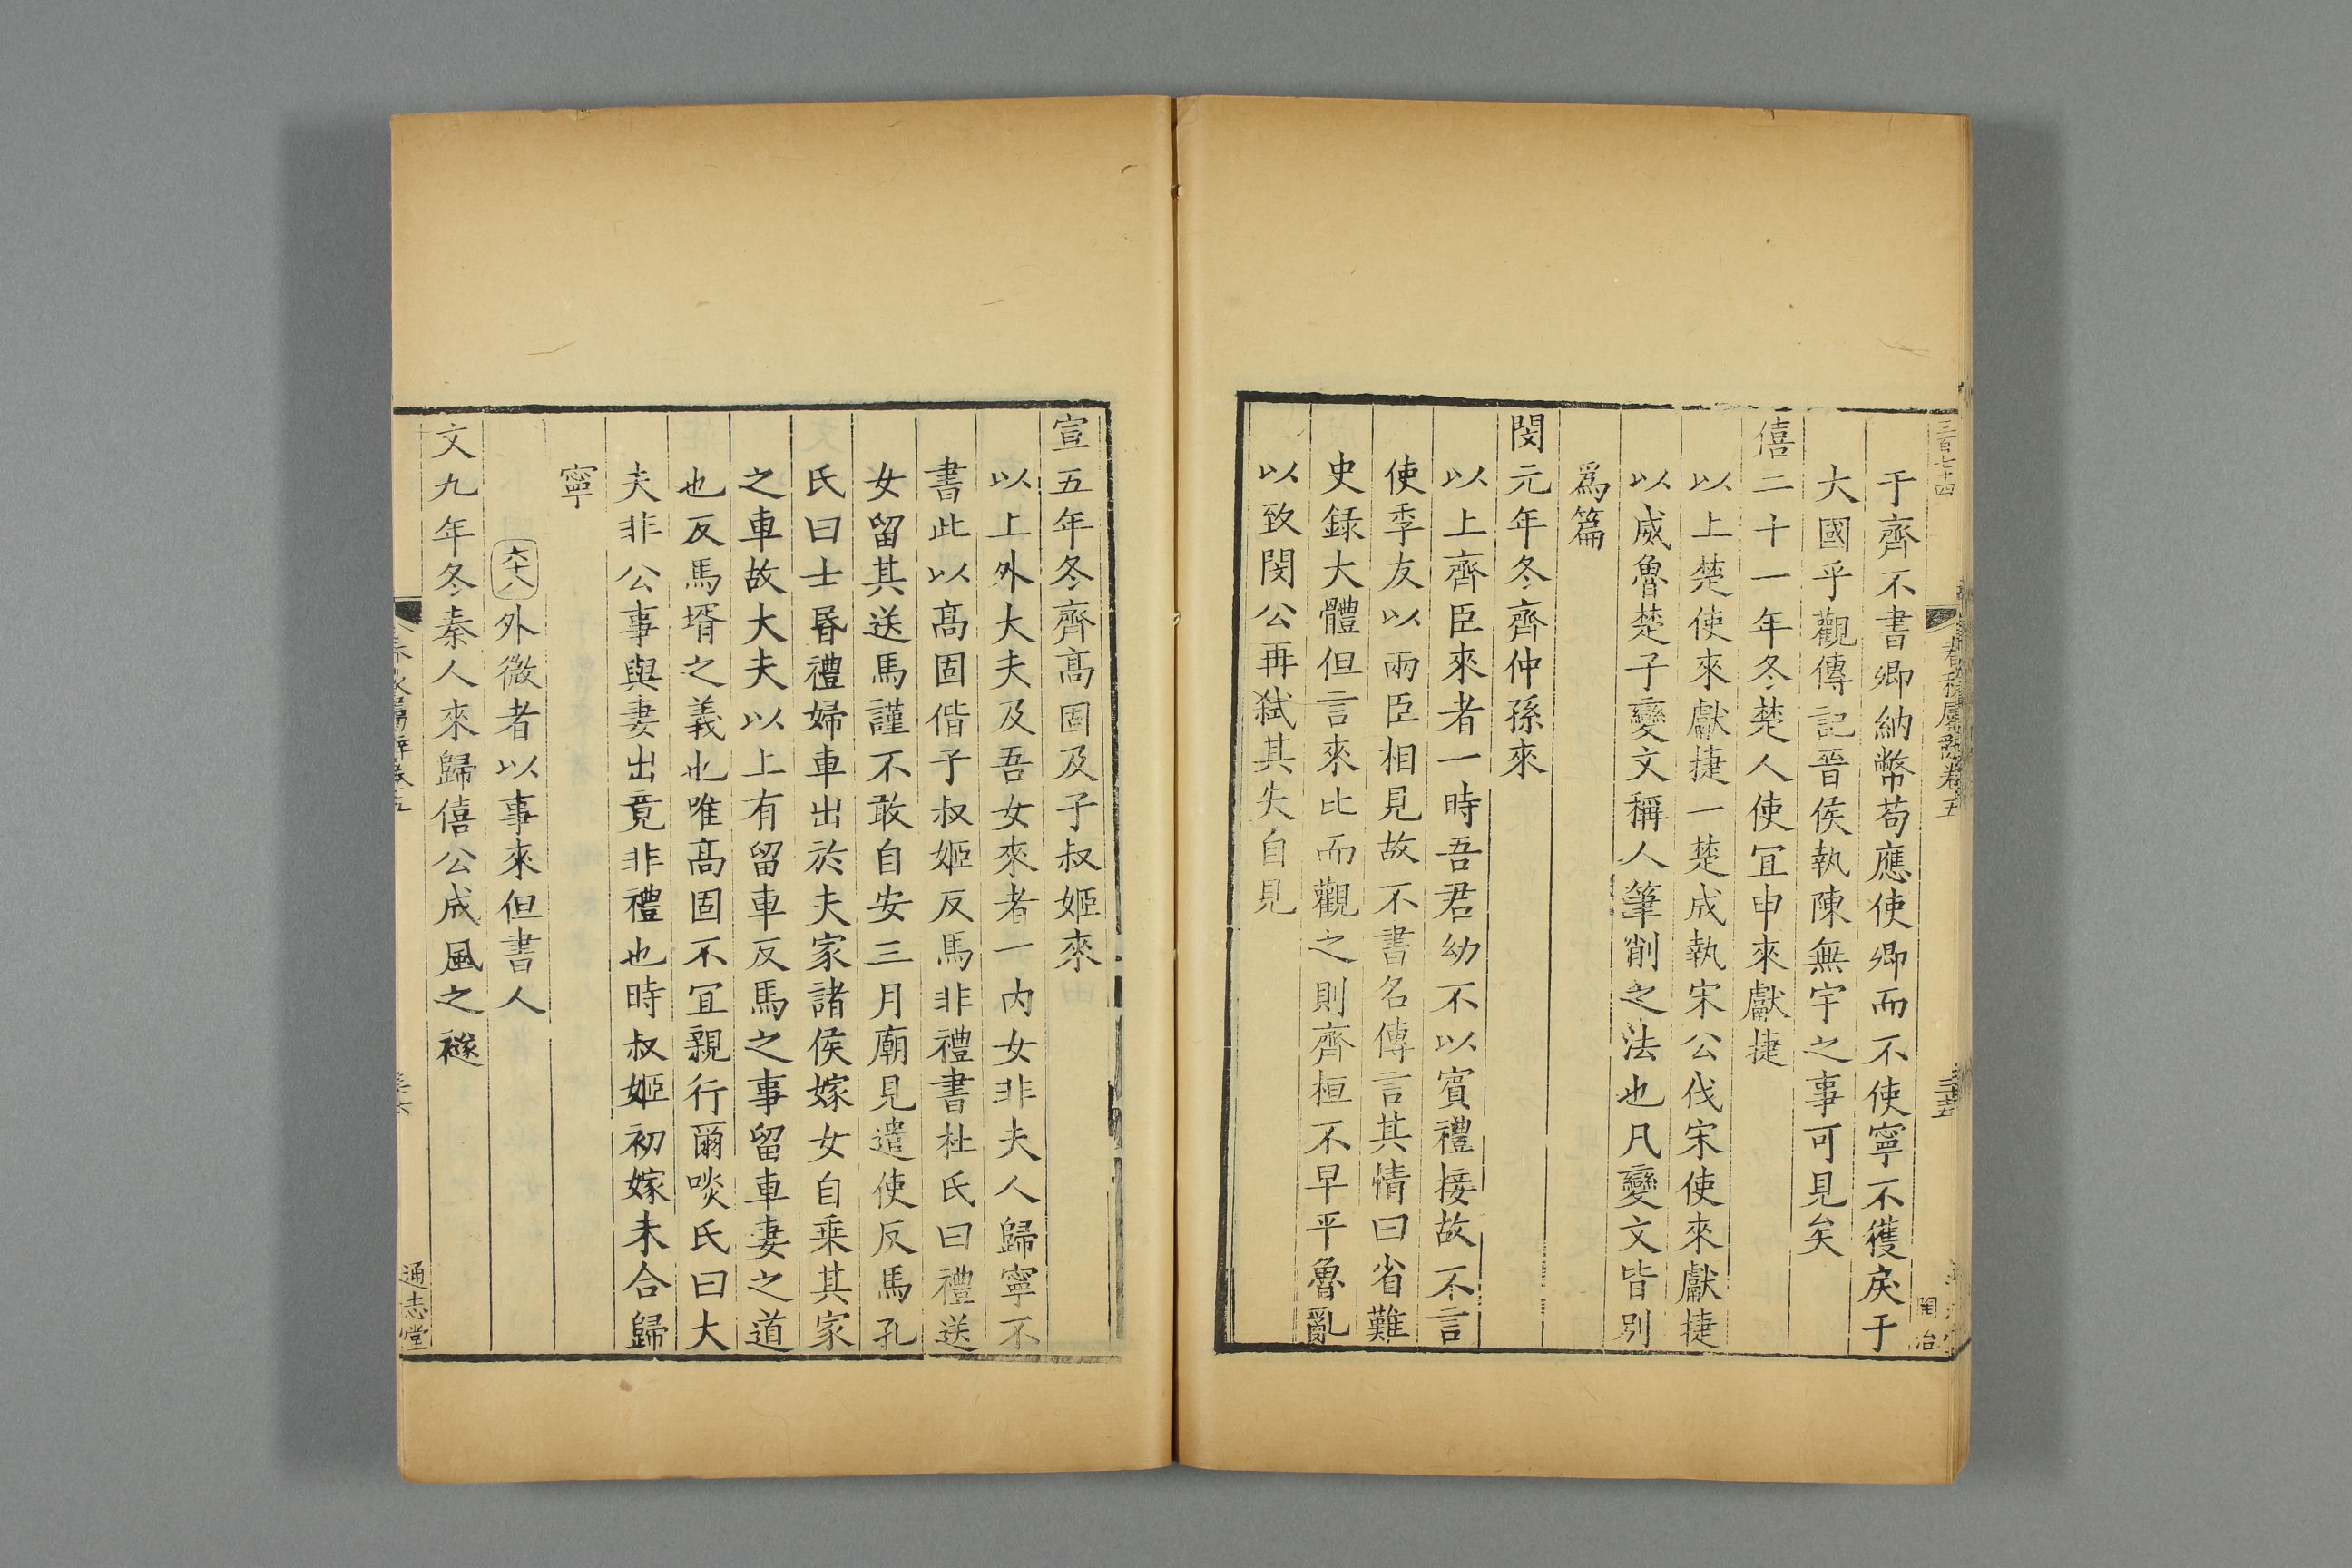 三百七十四
春秋屬辭卷五
三十五
閏治
于齊不書卿納幣苟應使卿而不使寧不獲戾于
大國乎觀傳記晉侯執陳無宇之事可見矣
僖二十一年冬楚人使冝申來獻捷
以上楚使來獻捷一楚成執宋公伐宋使來獻捷
以威魯楚子變文稱人筆削之法也凡變文皆別
爲篇
閔元年冬齊仲孫來
以上齊臣來者一時吾君幼不以賓禮接故不言
使季友以兩臣相見故不書名傳言其情曰省難
史録大體但言來比而觀之則齊桓不早平魯亂
以致閔公再弑其失自見
宣五年冬齊髙固及子叔姬來
以上外大夫及吾女來者一内女非夫人歸寧不
書此以髙固偕子叔姬反馬非禮書杜氏曰禮送
女留其送馬謹不敢自安三月廟見遣使反馬孔
氏曰士昬禮婦車出於夫家諸侯嫁女自乗其家
之車故大夫以上有留車反馬之事留車妻之道
也反馬壻之義也唯髙固不冝親行爾啖氏曰大
夫非公事與妻出竟非禮也時叔姬初嫁未合歸
寧
六十八外微者以事來但書人
文九年冬秦人來歸僖公成風之襚
春秋屬辭卷五
三十六
通志堂